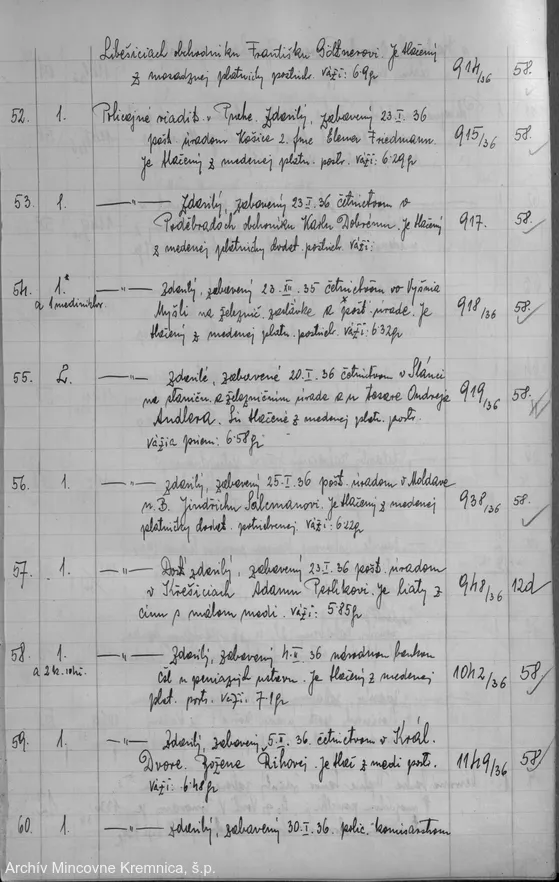 Libešiciach obchodníku Františku Göltnerovi. Je tlačený
z mosadznej platničky postriebr. váži: 6·9 gr 914/36 58.
52. 1. Policajné riadit. v Prahe. Zdarilý, zabavený 23.I.36
pošt. úradom Košice 2. fme Elemer Friedmann.
Je tlačený z medenej platn. postr. váži: 6·29 gr 915/36 58.
53. 1. —"— Zdarilý, zabavený 23.I.36 četníctvom v
Poděbradách obchodníku Karlu Dobrému. Je tlačený
z medenej platničky dodat. postriebr. váži: 917. 58.
54. 1. —"— Zdarilý, zabavený 23.XII.35 četníctvom vo Vyšnia
a 1 medirublov. Myšli na železnič. zastávke a pošt. úrade. Je
tlačený z medenej platn. postriebr. váži: 6·32 gr 918/36 58.
55. 2. —"— Zdarilé, zabavené 20.I.36 četníctvom v Slánci
na staničn. a železničnom úrade a u Ondreja
Andlera. Sú tlačené z medenej platn. postr.
vážia priem: 6·58 gr 919/36 58.
56. 1. —"— Zdarilý, zabavený 25.I.36 pošt. úradom v Moldave
n. B. Jindřichu Salcmanovi. Je tlačený z medenej
platničky dodat. postriebrenej. váži: 6·22 gr 938/36 58.
57. 1. —"— Dosť zdarilý, zabavený 23.I.36 pošt. úradom
v Křešiciach Adamu Perlíkovi. Je liaty z
cínu s málom medi. váži: 5·85 gr 948/36 12d
58. 1. —"— Zdarilý, zabavený 4.II.36 národnou bankou
čsl. u peniazných ústavu. Je tlačený z medenej
plat. postr. váži: 7·1 gr 1042/36 58
59. 1. —"— Zdarilý, zabavený 5.II.36. četníctvom v Král.
Dvore. Božena Říhovej. Je tlač z medi postr.
váži: 6·48 gr 1149/36 58
60. 1. —"— Zdarilý, zabavený 30.I.36. polic. komisarstvom
Archív Mincovne Kremnica, š.p.